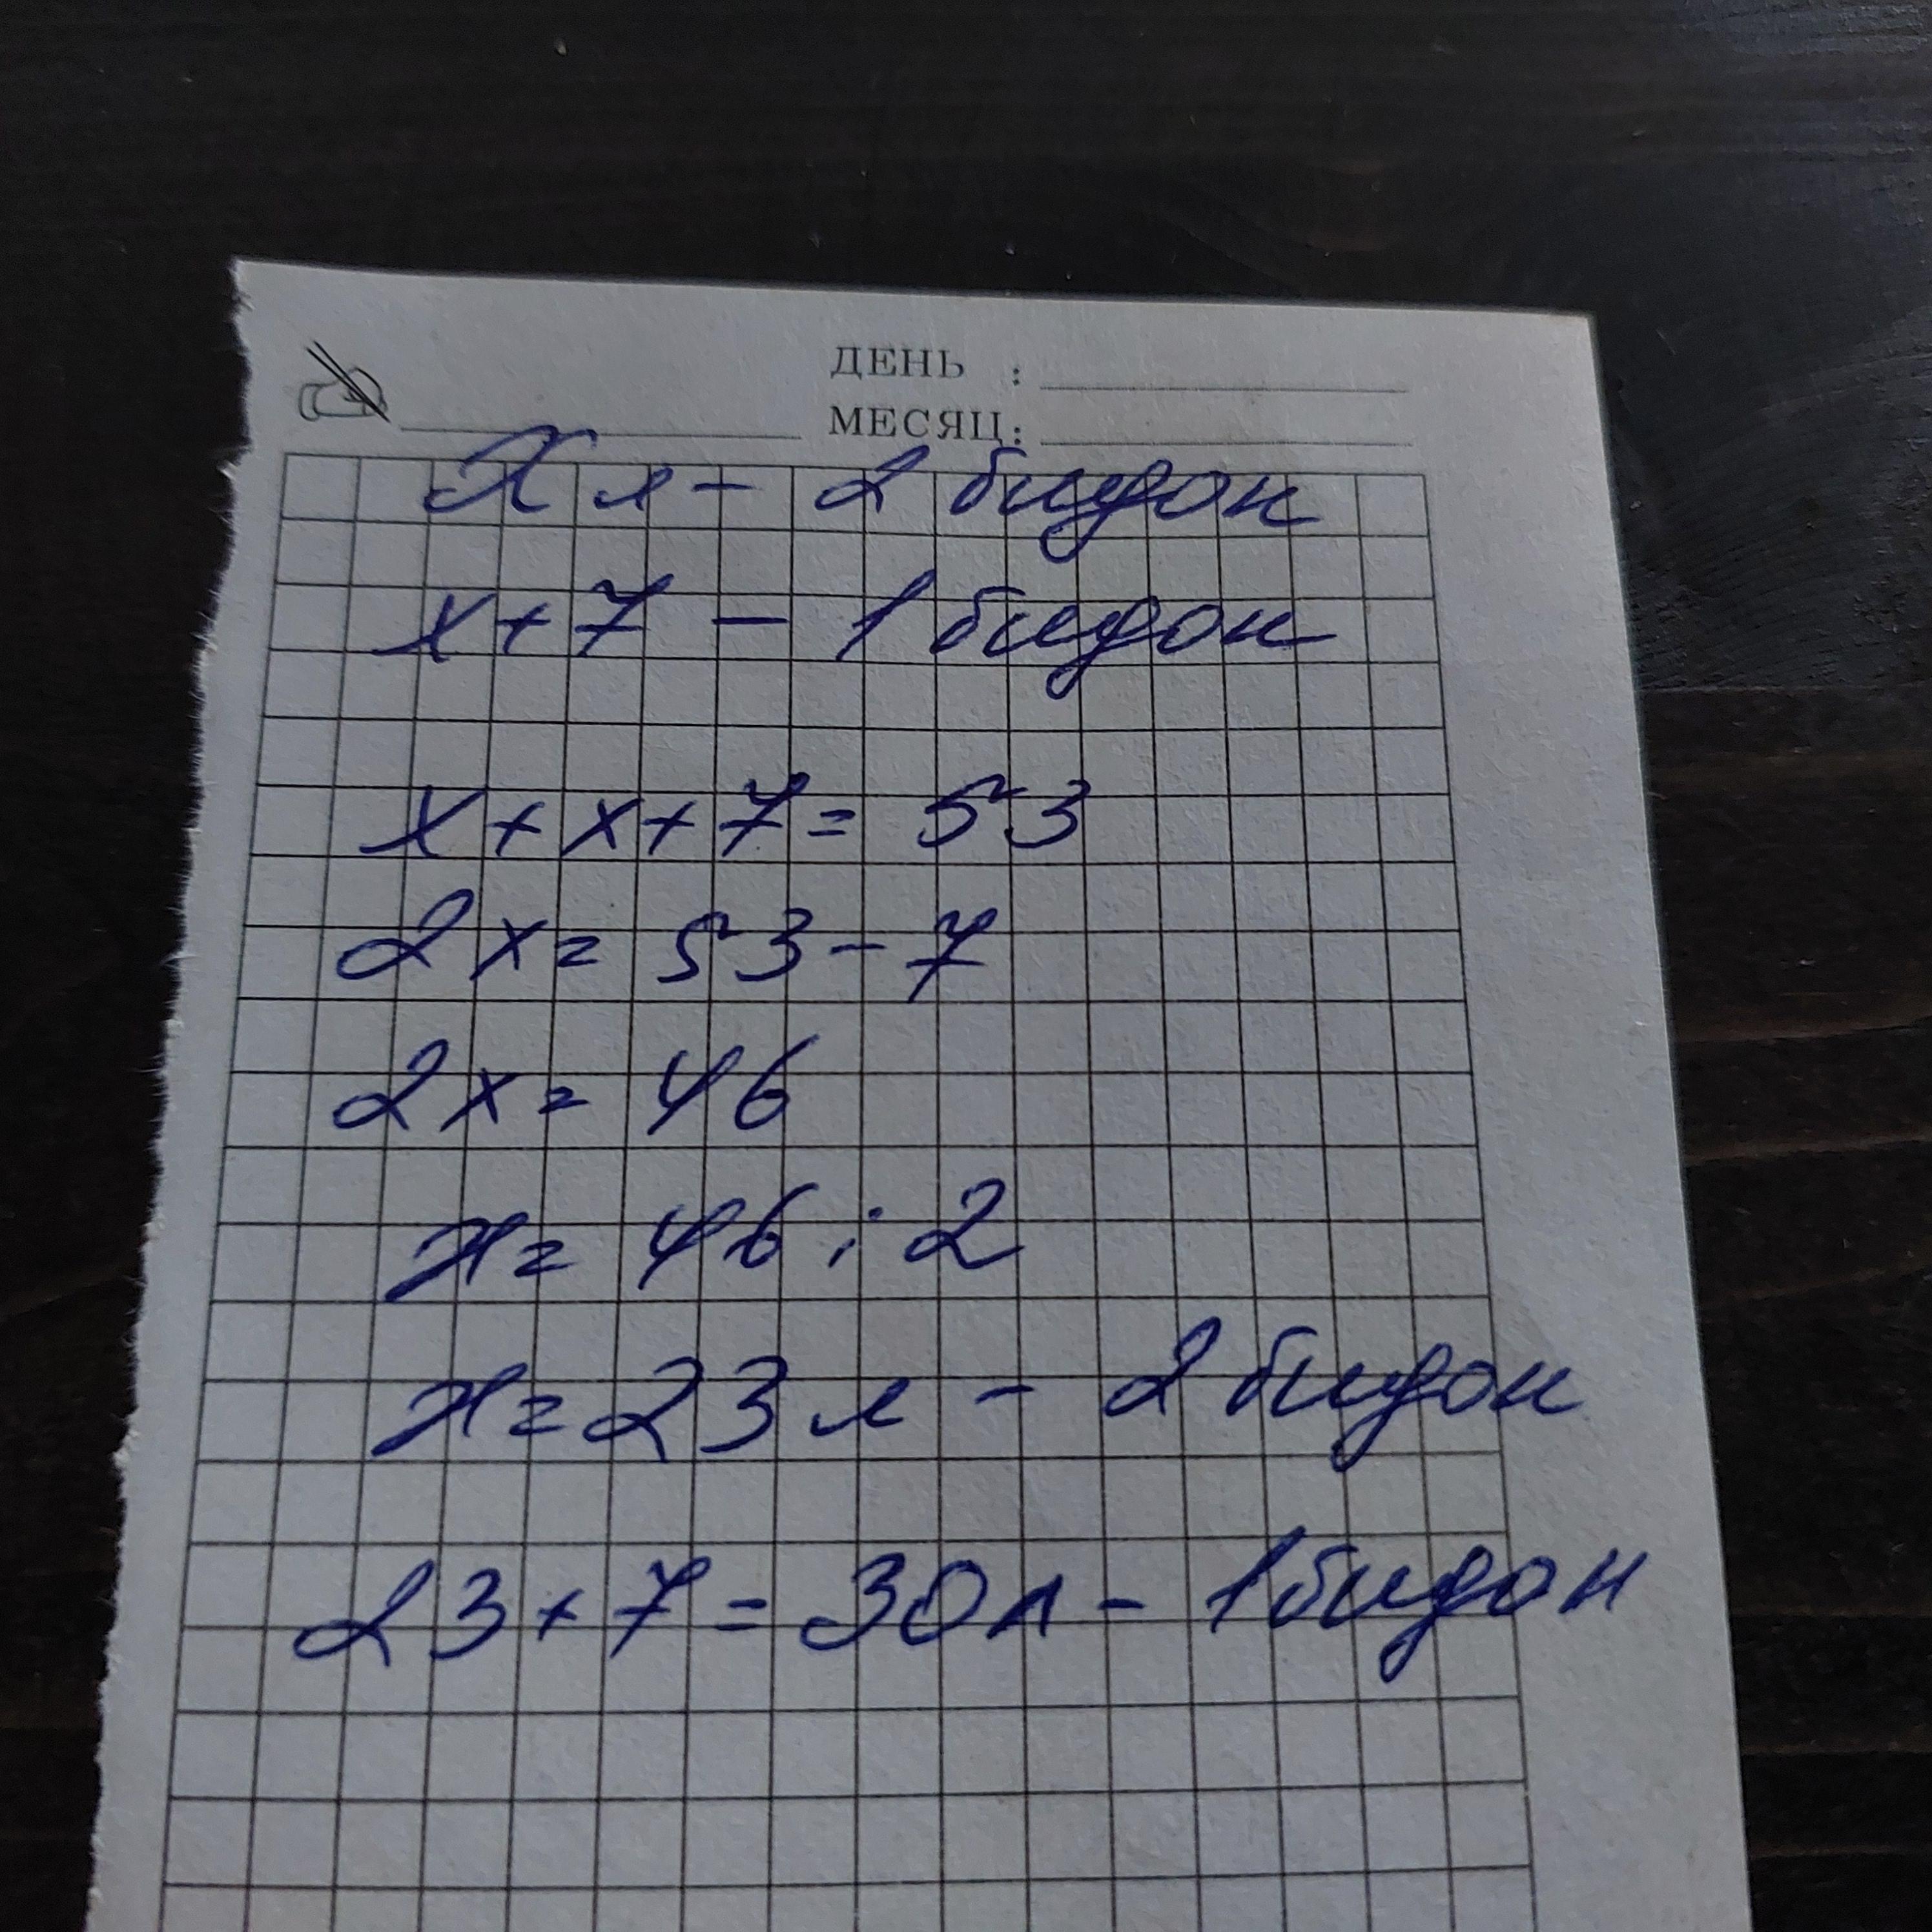 ДЕНЬ :
МЕСЯЦ:
X л - 2 бидон
x+7 - 1 бидон
x+x+7= 53
2x= 53-7
2x= 46
x= 46:2
x=23 л - 2 бидон
23+7=30л - 1 бидон